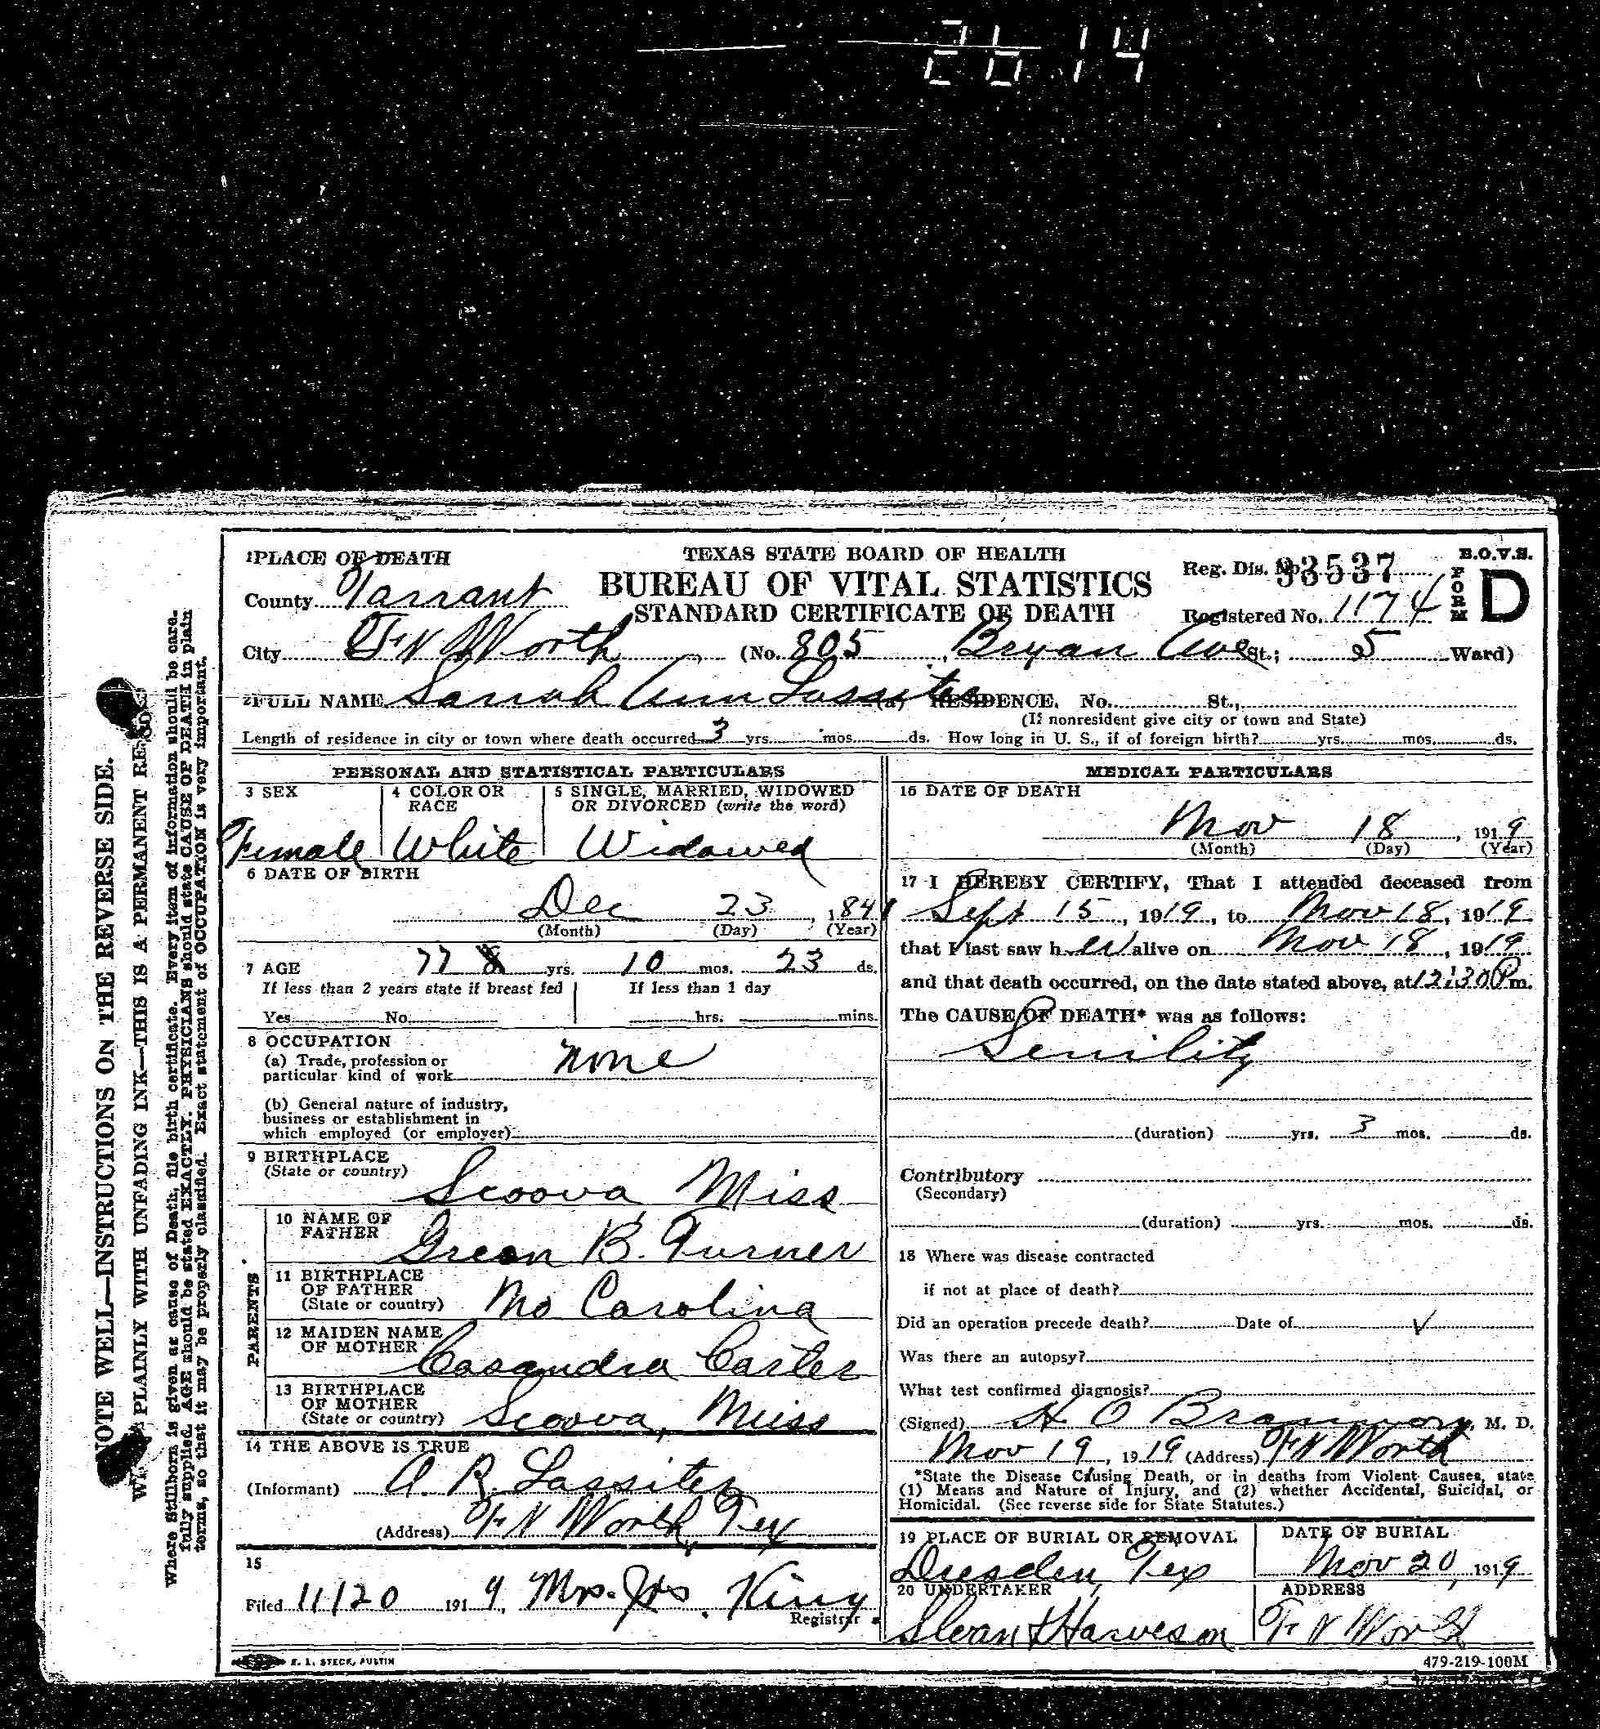 2614
1 PLACE OF DEATH
TEXAS STATE BOARD OF HEALTH
BUREAU OF VITAL STATISTICS
STANDARD CERTIFICATE OF DEATH
Reg. Dis. No. 33537
Registered No. 1174
B.O.V.S.
FORM D
County Tarrant
City Ft Worth (No. 805 Bryan Ave St.; 5 Ward)
2 FULL NAME Sarrah Ann Lassiter (a) RESIDENCE. No. St.,
(If nonresident give city or town and State)
Length of residence in city or town where death occurred 3 yrs. mos. ds. How long in U. S., if of foreign birth? yrs. mos. ds.
PERSONAL AND STATISTICAL PARTICULARS
3 SEX
Female
4 COLOR OR RACE
White
5 SINGLE, MARRIED, WIDOWED
OR DIVORCED (write the word)
Widowed
6 DATE OF BIRTH
Dec 23, 1841
(Month) (Day) (Year)
7 AGE 77 yrs. 10 mos. 23 ds.
If less than 2 years state if breast fed
Yes No
If less than 1 day
hrs. mins.
8 OCCUPATION
(a) Trade, profession or
particular kind of work none
(b) General nature of industry,
business or establishment in
which employed (or employer)
9 BIRTHPLACE
(State or country) Scoova, Miss
PARENTS
10 NAME OF
FATHER Green B. Turner
11 BIRTHPLACE
OF FATHER
(State or country) No Carolina
12 MAIDEN NAME
OF MOTHER Casandra Carter
13 BIRTHPLACE
OF MOTHER
(State or country) Scoova, Miss
14 THE ABOVE IS TRUE
(Informant) A. R. Lassiter
(Address) Ft Worth, Tex
15
Filed 11/20 1919, Mrs. Jas. King
Registrar
E. L. STECK, AUSTIN
MEDICAL PARTICULARS
16 DATE OF DEATH
Nov 18, 1919
(Month) (Day) (Year)
17 I HEREBY CERTIFY, That I attended deceased from
Sept 15, 1919, to Nov 18, 1919
that I last saw her alive on Nov 18, 1919
and that death occurred, on the date stated above, at 12:30 P m.
The CAUSE OF DEATH* was as follows:
Senility
(duration) yrs. 3 mos. ds.
Contributory
(Secondary)
(duration) yrs. mos. ds.
18 Where was disease contracted
if not at place of death?
Did an operation precede death? Date of ✓
Was there an autopsy?
What test confirmed diagnosis?
(Signed) H O , M. D.
Nov 19, 1919 (Address) Ft Worth
*State the Disease Causing Death, or in deaths from Violent Causes, state
(1) Means and Nature of Injury, and (2) whether Accidental, Suicidal, or
Homicidal. (See reverse side for State Statutes.)
19 PLACE OF BURIAL OR REMOVAL
Dresden, Tex
DATE OF BURIAL
Nov 20, 1919
20 UNDERTAKER
Sloan & Harveson
ADDRESS
Ft Worth
479-219-100M
NOTE WELL—INSTRUCTIONS ON THE REVERSE SIDE.
PLAINLY WITH UNFADING INK—THIS IS A PERMANENT
Where Stillborn is given as cause of Death, file birth certificate. Every item of information should be care-
fully supplied. AGE should be stated EXACTLY. PHYSICIANS should state CAUSE OF DEATH in plain
terms, so that it may be properly classified. Exact statement of OCCUPATION is very important.